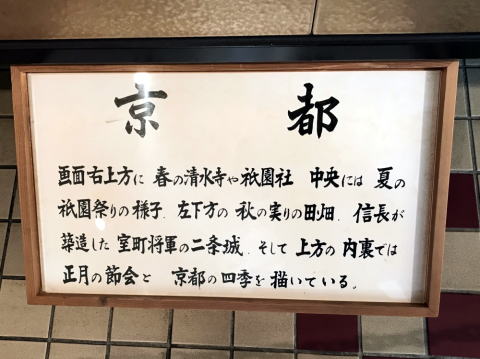 京都
画面右上方に 春の清水寺や祇園社 中央には 夏の
祇園祭りの様子、左下方の 秋の実りの田畑、信長が
築造した 室町将軍の二条城、そして 上方の 内裏では
正月の節会と 京都の四季を 描いている。